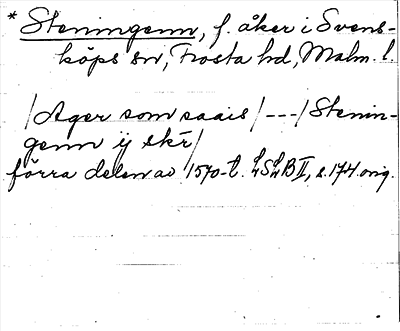 * Steningenn, f. åker i Svens-
köps sn, Frosta hd, Malm. l.
/Ager som saais/---/Stenin-
genn ij skr/
förra delen av 1570-t. LSLB II, s. 174 orig.